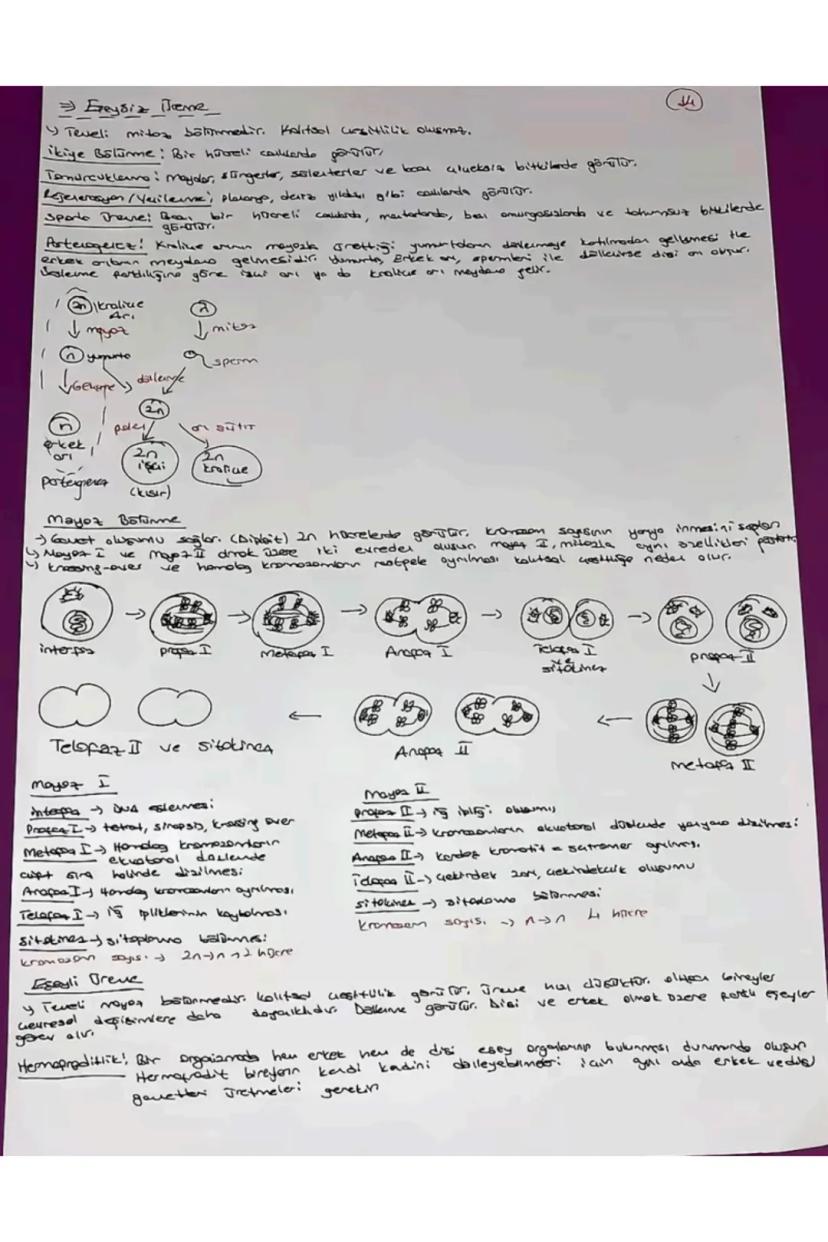 ⇒ Eşeysiz Üreme
14
↳ Temeli mitoz bölünmedir. Kalıtsal çeşitlilik oluşmaz.
İkiye Bölünme: Bir hücreli canlılarda görülür.
Tomurcuklanma: Mayalar, süngerler, sölenterler ve bazı çiçeksiz bitkilerde görülür.
Rejenerasyon/Yenilenme; planarya, deniz yıldızı gibi canlılarda görülür.
Sporla Üreme: Bazı bir hücreli canlılarda, mantarlarda, bazı omurgasızlarda ve tohumsuz bitkilerde
görülür.
Partenogenez: Kraliçe arının mayozla ürettiği yumurtaların döllenmeye katılmadan gelişmesi ile
erkek arıların meydana gelmesidir. Yumurta, Erkek arı, spermleri ile döllenirse dişi arı oluşur.
Beslenme farklılığına göre işçi arı ya da kraliçe arı meydana gelir.
2n kraliçe
Arı
↓ mayoz
↓ mitoz
n yumurta
sperm
↓ Gelişme
döllenme
2n
n
erkek
arı
polen
arı sütü
2n
işçi
2n
kraliçe
partenogenez
(kısır)
Mayoz Bölünme
→ Gamet oluşumu sağlar. (Diploit) 2n hücrelerde görülür. Kromozom sayısının yarıya inmesini sağlar.
↳ Mayoz I ve Mayoz II olmak üzere iki evreden oluşur. Mayoz II, mitozla aynı özellikleri
↳ Krossing-over ve homolog kromozomların rastgele ayrılması kalıtsal çeşitliliğe neden olur.
interfaz → profaz I → Metafaz I → Anafaz I → Telofaz I → profaz II
ve
sitokinez
↓
Telofaz II ve sitokinez ← Anafaz II ← metafaz II
mayoz I
interfaz → DNA eşlenmesi
Profaz I → tetrat, sinapsis, krossing over
Metafaz I → Homolog kromozomların
ekvatoral düzlemde
çift sıra halinde dizilmesi
Anafaz I → Homolog kromozomların ayrılması
Telofaz I → iğ ipliklerinin kaybolması
sitokinez → sitoplazma bölünmesi
kromozom sayısı → 2n→n→2 hücre
Mayoz II
profaz II → iğ ipliği oluşumu
Metafaz II → kromozomların ekvatoral düzlemde yan yana dizilmesi
Anafaz II → kardeş kromatit = sentromer ayrılması
Telofaz II → çekirdek zarı, çekirdekçik oluşumu
sitokinez → sitoplazma bölünmesi
kromozom sayısı → n→n 4 hücre
Eşeyli Üreme
↳ Temeli mayoz bölünmedir. Kalıtsal çeşitlilik görülür. Üreme hızı düşüktür. Oluşan bireyler
çevresel değişimlere daha dayanıklıdır. Döllenme görülür. Dişi ve erkek olmak üzere farklı eşeyler
görev alır.
Hermafroditlik: Bir organizmada hem erkek hem de dişi eşey organlarının bulunması durumunda oluşur
Hermafrodit bireylerin kendi kendini dölleyebilmesi için aynı anda erkek ve dişi
gametleri üretmeleri gerekir